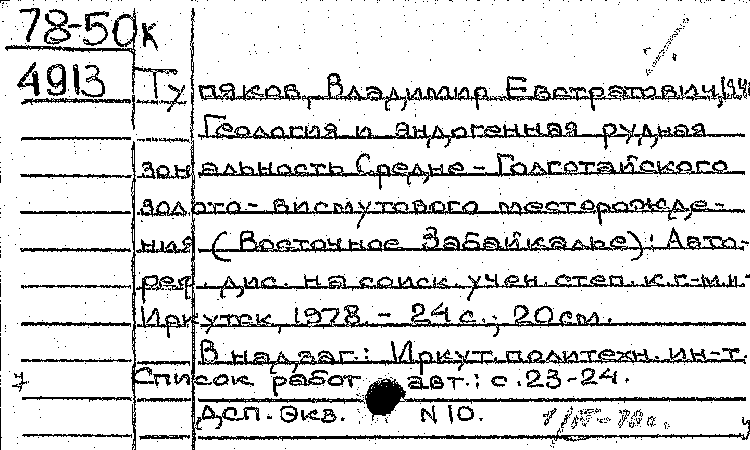 78-50к
4913 Тупяков, Владимир Евстратович, 194
Геология и эндогенная рудная
зональность Средне-Голготайского
золото-висмутового месторожде-
ния (Восточное Забайкалье): Авто-
реф. дис. на соиск. учен. степ. к.г.-м.н.-
Иркутск, 1978. - 24 с.; 20 см.
В надзаг.: Иркут. политехн. ин-т.
Список работ авт.: с. 23-24.
ДСП. Экз. N 10.